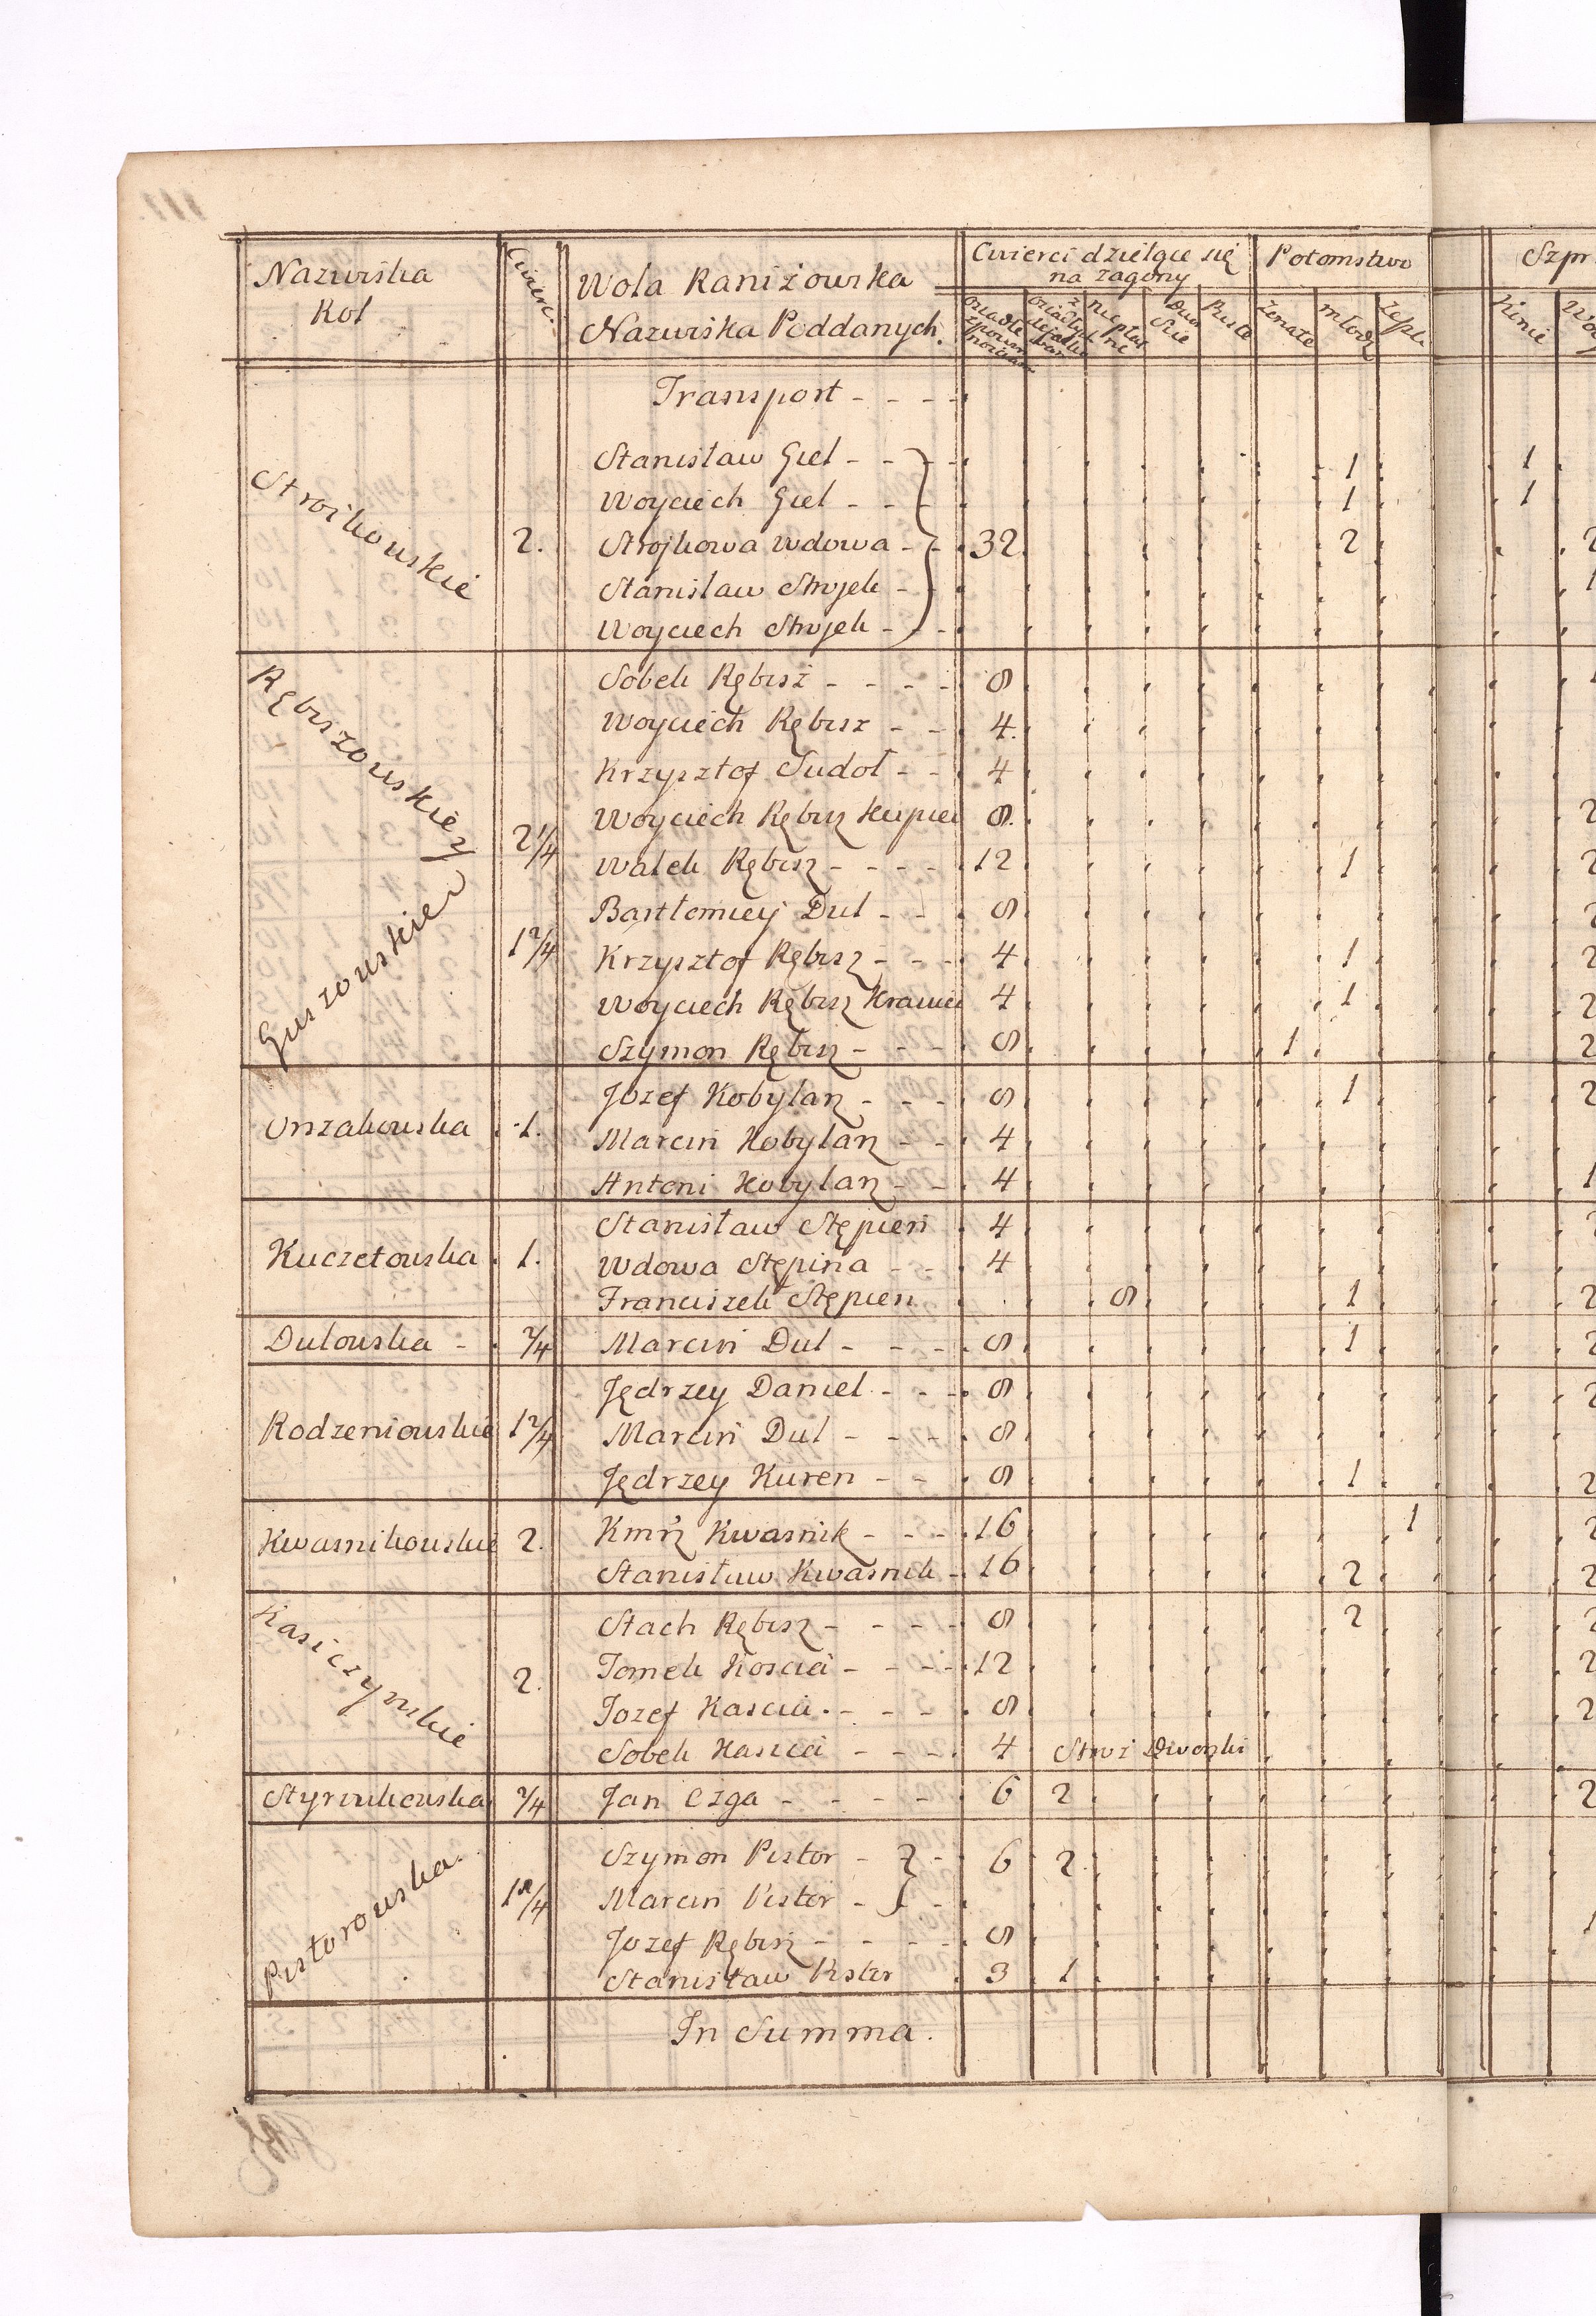 Nazwiska Kol | Cwierc. | Wola Raniżowska Nazwiska Poddanych. | Cwierci dzielące się na zagony | Potomstwo | Szpr
Puste | Żenate | młodz | Kinie
Transport
Stroikowskie | 2. | Stanisław Giel | 1 | 1
Woyciech Giel | 1 | 1
Strojkowa wdowa | 32 | 2 | 2
Stanisław Strojek | 1
Woyciech Strojek
Rębiszowskiey | 2 1/4 | Sobek Rębisz | 8
Woyciech Rębisz | 4
Krzysztof Sudoł | 4
Woyciech Rębisz Kupiec | 8 | 2
Walek Rębisz | 12 | 1 | 2
Guszowskiey | 1 2/4 | Bartłomiey Dul | 8 | 2
Krzysztof Rębisz | 4 | 1 | 2
Woyciech Rębisz Krawiec | 4 | 1 | 2
Szymon Rębisz | 8 | 1 | 2
1. | Jozef Kobylarz | 8 | 1 | 2
Marcin Kobylarz | 4
Antoni Kobylarz | 4 | 1
Kuczetowska | 1. | Stanisław Stępień | 4
Wdowa Stępina | 4
Franciszek Stępien | 8 | 1 | 2
Dulowska | 2/4 | Marcin Dul | 8 | 1 | 2
Rodzeniowskie | 1 2/4 | Jędrzey Daniel | 8 | 2
Marcin Dul | 8
Jędrzey Kuren | 8 | 1 | 2
Kwasnikowskie | 2. | Kwasnik | 16 | 1 | 2
Stanisław Kwasnik | 16 | 2 | 2
Kasiczynskie | 2. | Stach Rębisz | 8 | 2 | 2
Tomek Koscia | 12 | 2
Jozef Kascia | 8 | 2
Sobek Kascia | 4 | Stroż Dworski
2/4 | Jan Ozga | 6 | 2 | 2
Pistorowska. | 1 2/4 | Szymon Pistor | 6 | 2
Marcin Pistor
Jozef Rębisz | 8 | 1
Stanisław Pistor | 3 | 1
In Summa.